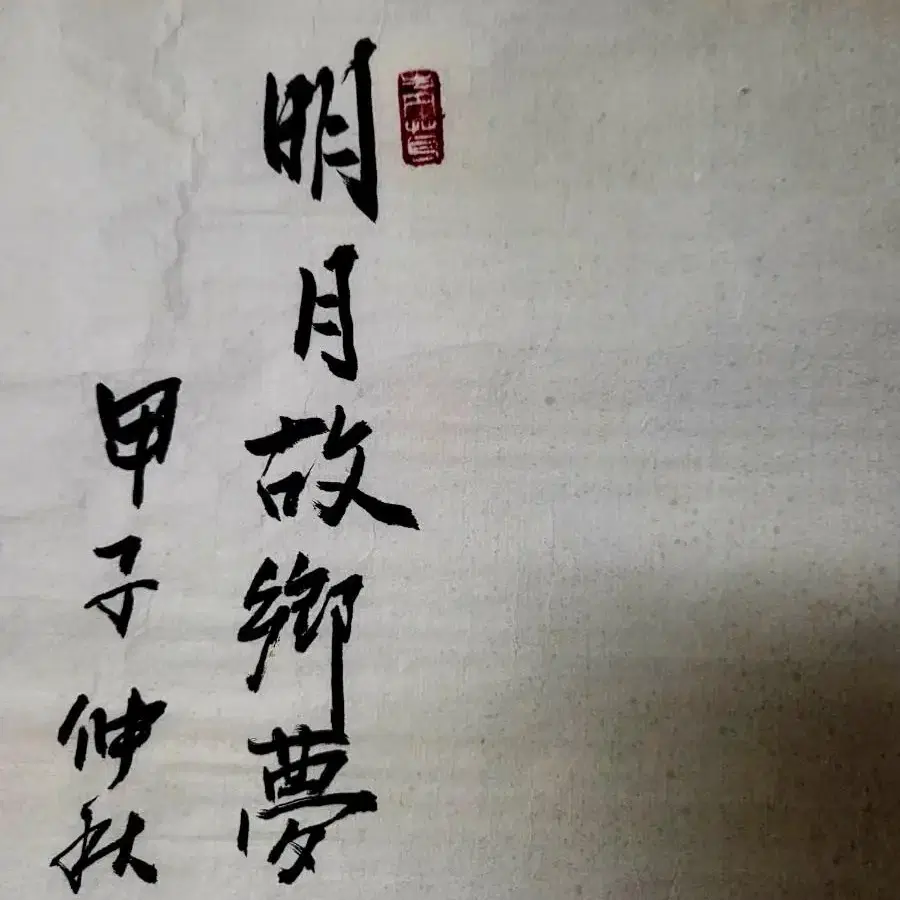 明月故鄉夢
甲子仲秋